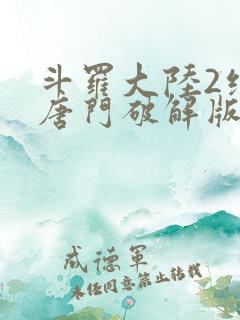 斗羅大陸2
唐門破解版
成德軍
未经同意禁止转载